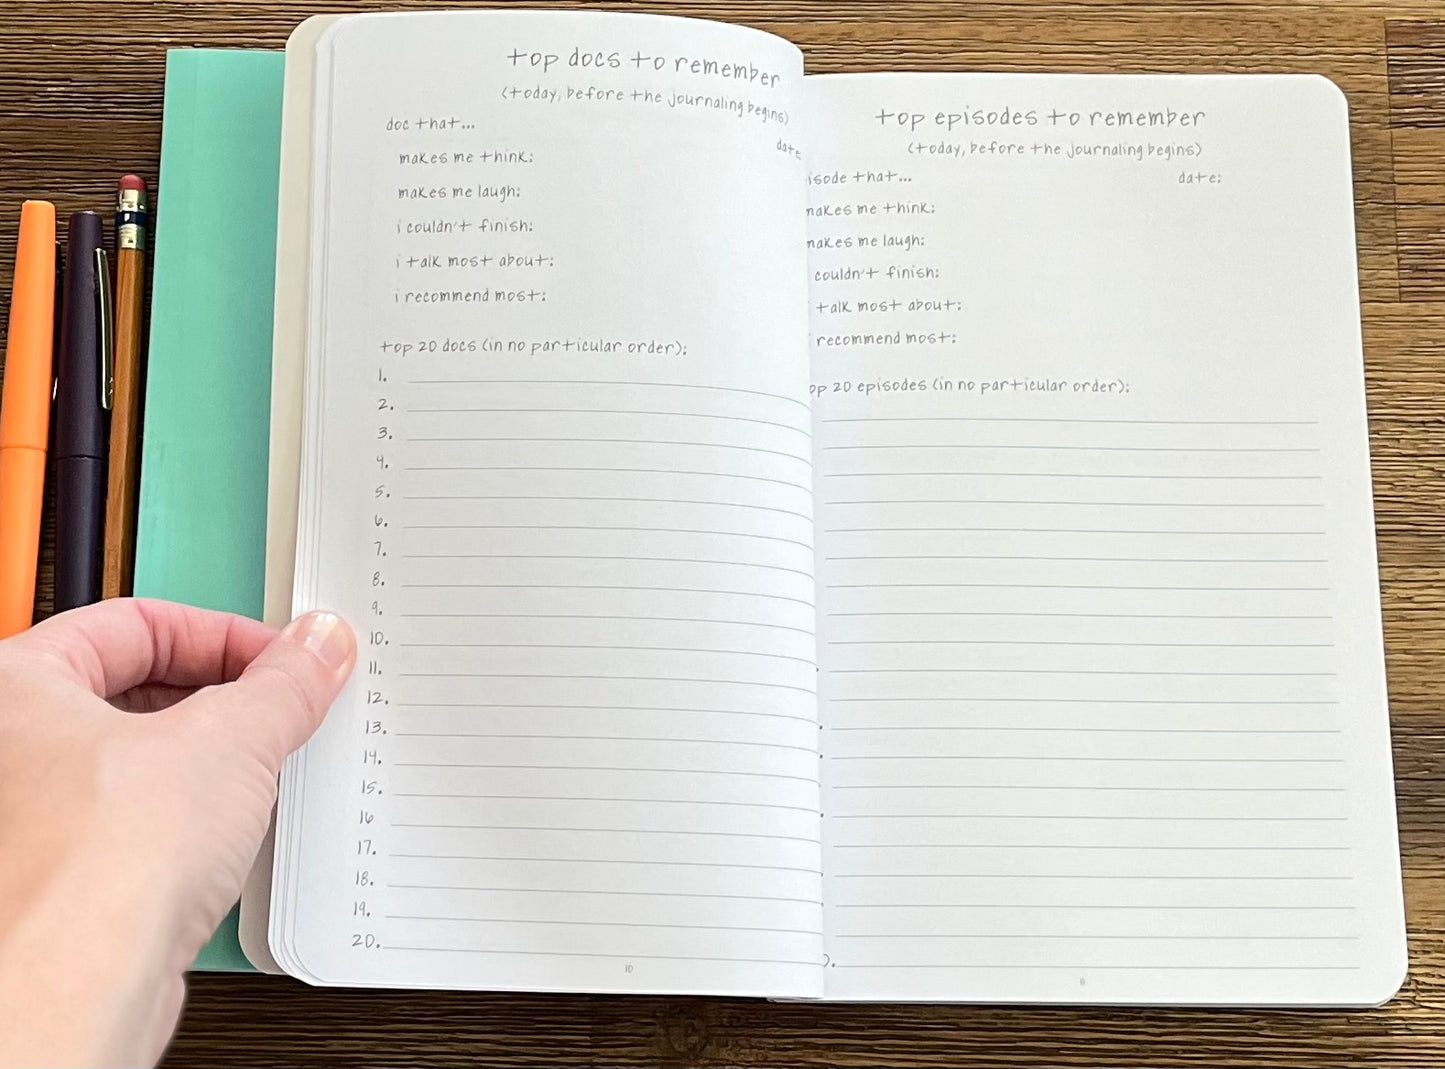 top docs to remember
(today, before the journaling begins)
date:
doc that...
makes me think:
makes me laugh:
i couldn't finish:
i talk most about:
i recommend most:
top 20 docs (in no particular order):
1.
2.
3.
4.
5.
6.
7.
8.
9.
10.
11.
12.
13.
14.
15.
16
17.
18.
19.
20.
10
top episodes to remember
(today, before the journaling begins)
isode that...
date:
makes me think:
makes me laugh:
couldn't finish:
talk most about:
recommend most:
op 20 episodes (in no particular order):